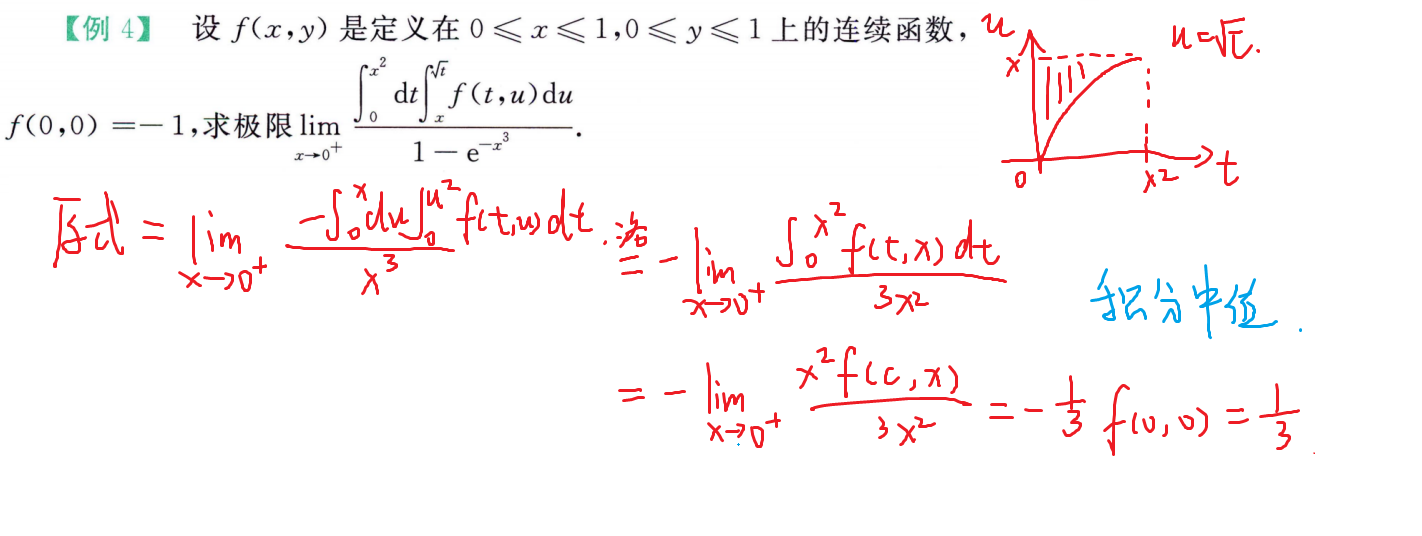 【例 4】 设 f(x,y) 是定义在 0≤x≤1,0≤y≤1 上的连续函数,
f(0,0) =-1,求极限 lim_{x→0⁺} \frac{∫_0^{x²} dt ∫_x^{√t} f(t,u)du}{1-e^{-x³}}.
u
u=√t.
x
0
x2
t
原式 = lim_{x→0⁺} \frac{-∫_0^x du ∫_0^{u²} f(t,u) dt}{x³}. 洛 = -lim_{x→0⁺} \frac{∫_0^{x²} f(t,x) dt}{3x²}
积分中值.
= -lim_{x→0⁺} \frac{x² f(c,x)}{3x²} = -\frac{1}{3} f(0,0) = \frac{1}{3}.